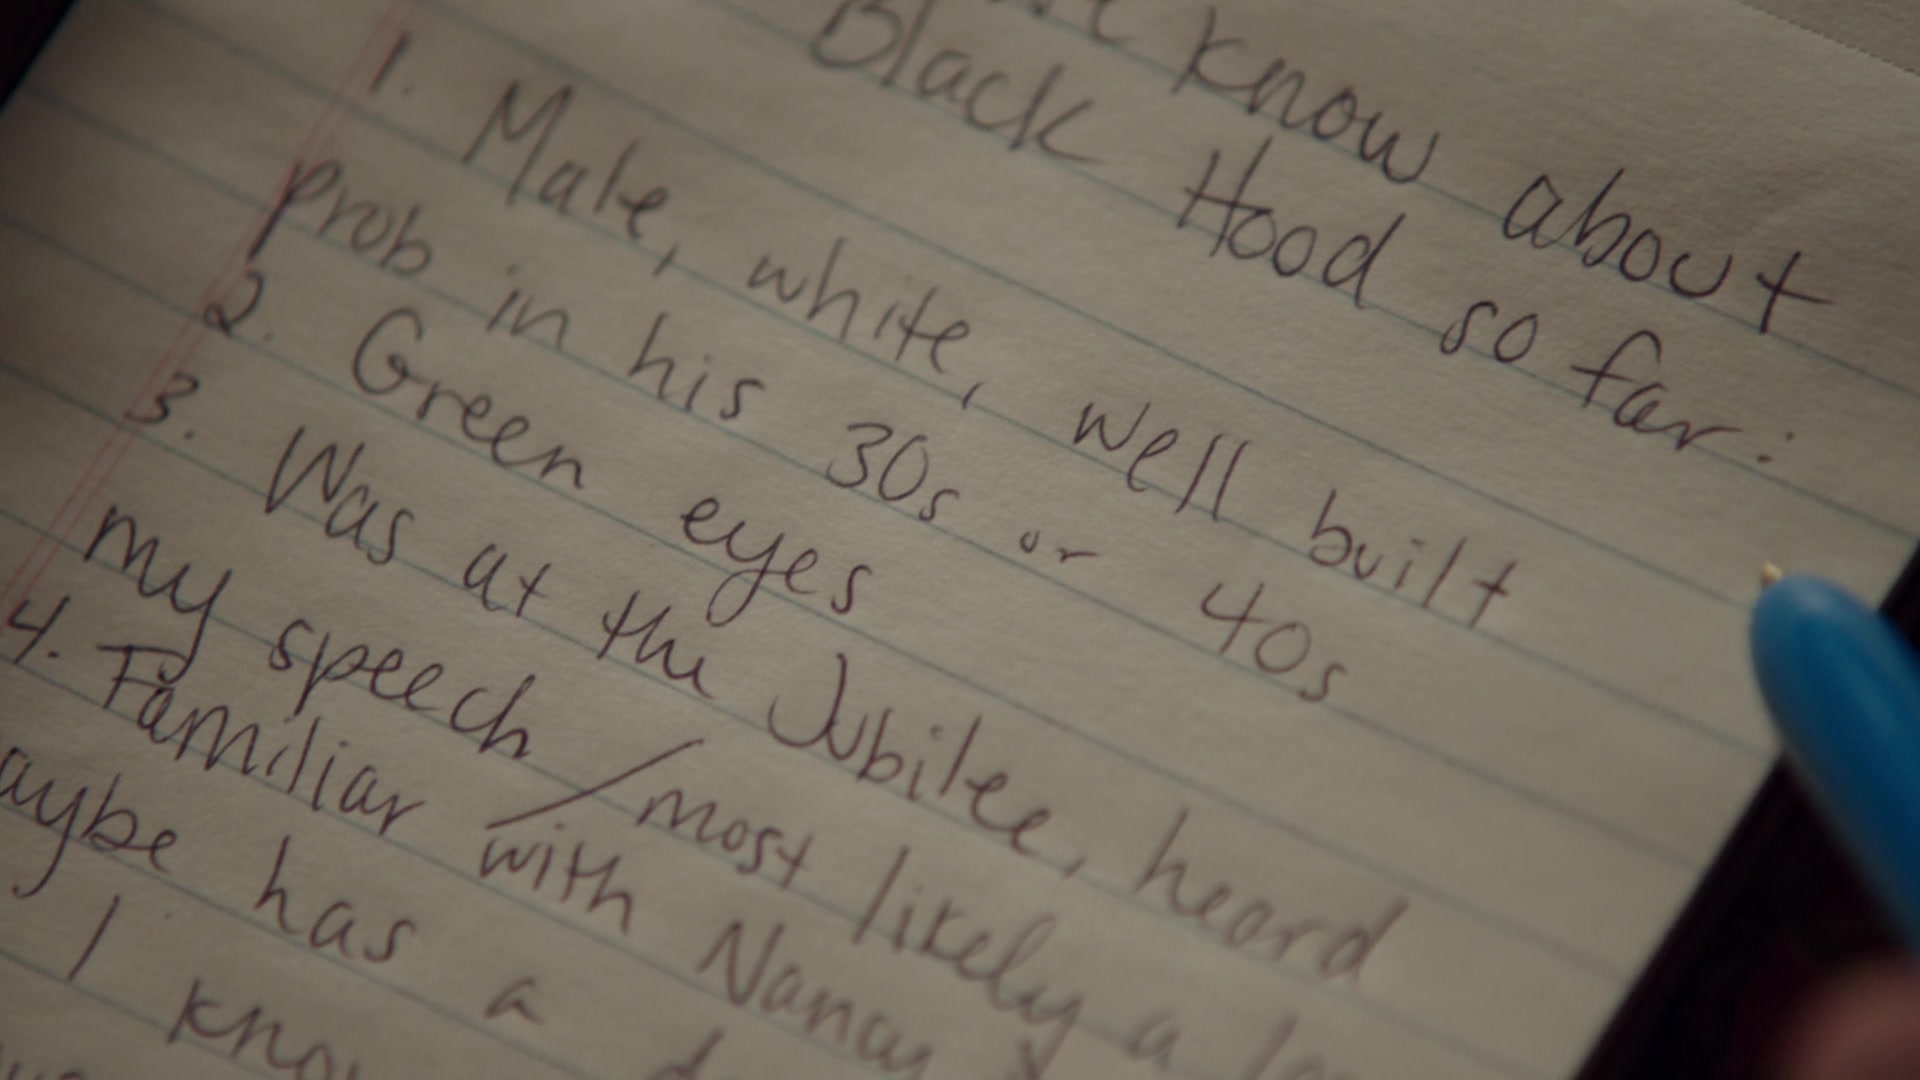 know about
Black Hood so far:
1. Male, white, well built
prob in his 30s or 40s
2. Green eyes
3. Was at the Jubilee, heard
my speech / most likely a
4. Familiar with Nancy
has a
I